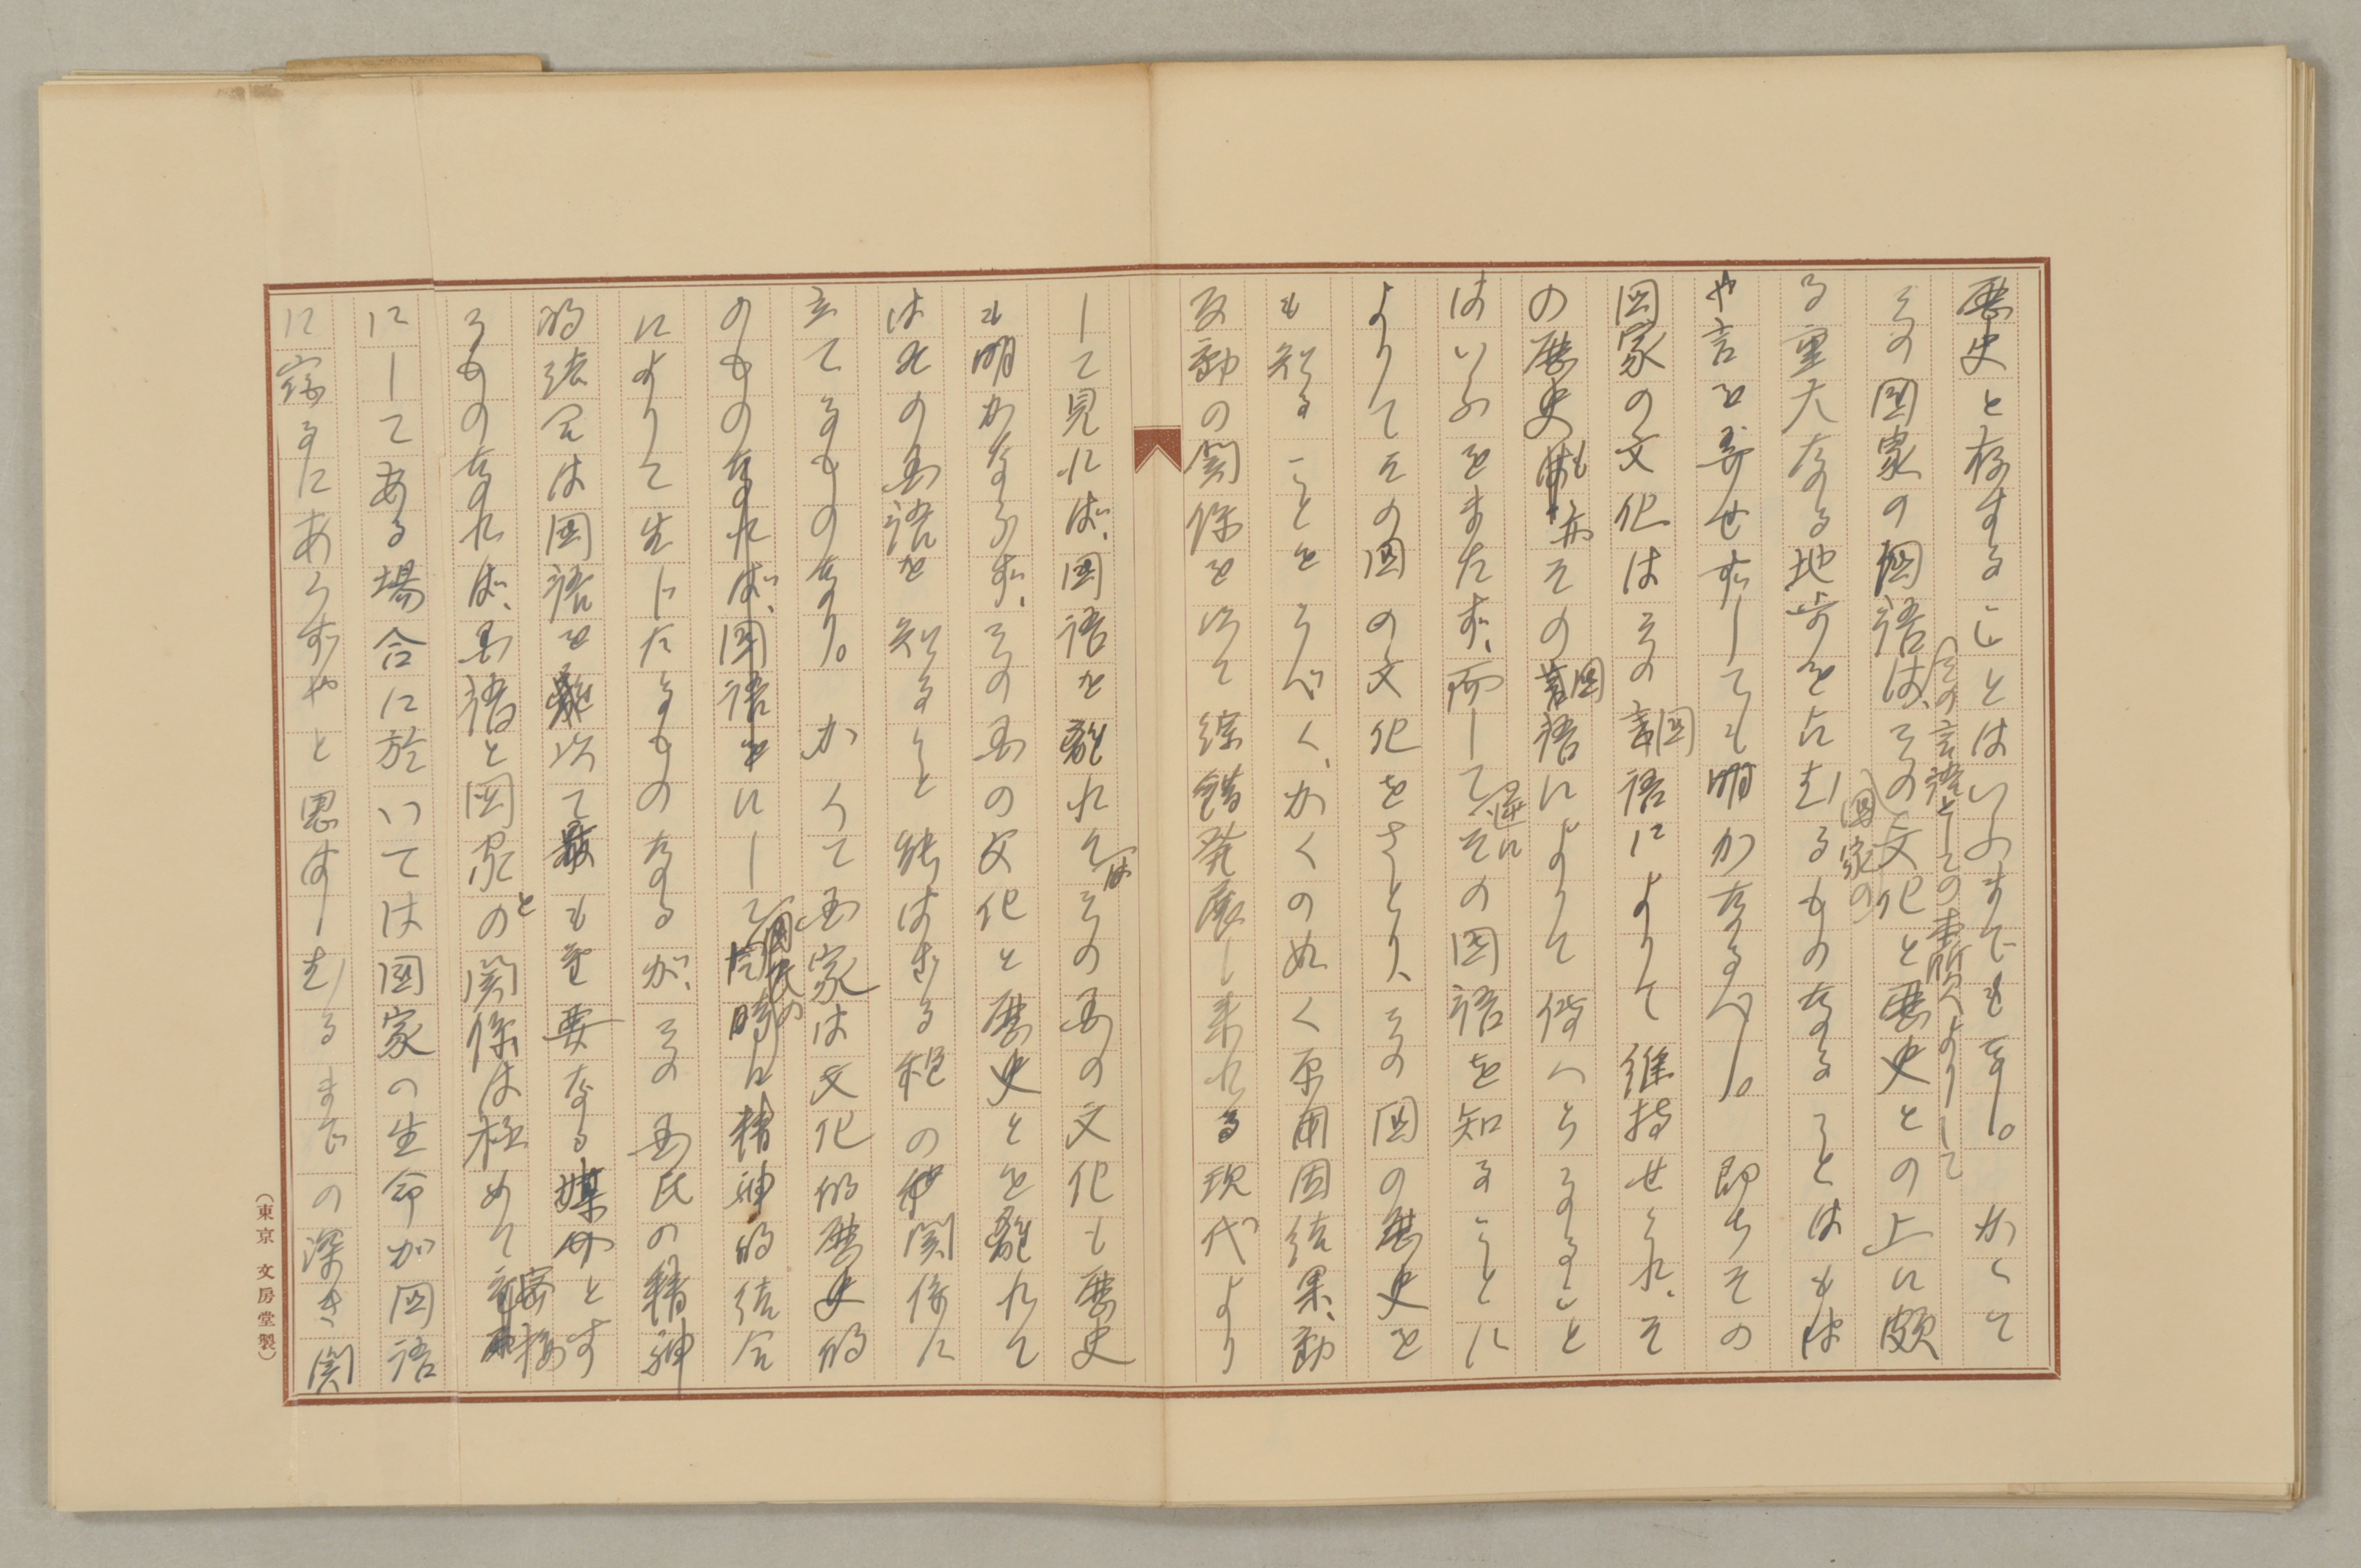 歴史と存することはいふまでもなし。かくて
その国家の国語は、その言語としての本質よりして
その国家の文化と歴史との上に頗
る重大なる地歩を占むるものなることはもは
や言を要せずしても明かなるべし。即ちその
国家の文化はその国語によりて維持せられ、そ
の歴史も亦その国語によりて伝へらるること
はいふをまたず、而して、逆にその国語を知ることに
よりてその国の文化をさとり、その国の歴史を
も知ることをうべく、かくのぬく原因結果、動
反動の関係を以て綜錯発展し来れる現代より
して見れば、国語を離れてはその国の文化も歴史
も明かならず、その国の文化と歴史とを離れて
はその国語を知ること能はざる程の関係に
立てるものなり。かくて国家は文化的歴史的
のものなれば、国語にして国民の精神的結合
によりて生じたるものなるが、その国民の精神
的結合は国語を以て最も重要なる媒介とす
るものなれば、国語と国家との関係は極めて密接
にしてある場合に於いては国家の生命が国語
に宿るにあらずやと思はしむるまでの深き関
(東京 文房堂製)